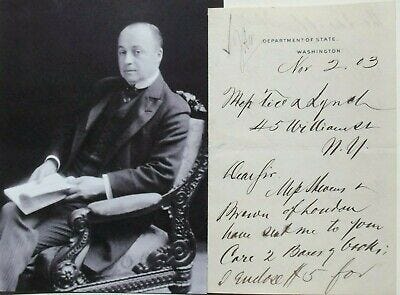 DEPARTMENT OF STATE.
WASHINGTON
Nov 2. 03
Lynch
45 William St
N. Y.
Dear Sir
Brown of London
have sent me to your
Care 2 Boxes of books;
I enclose $5 for